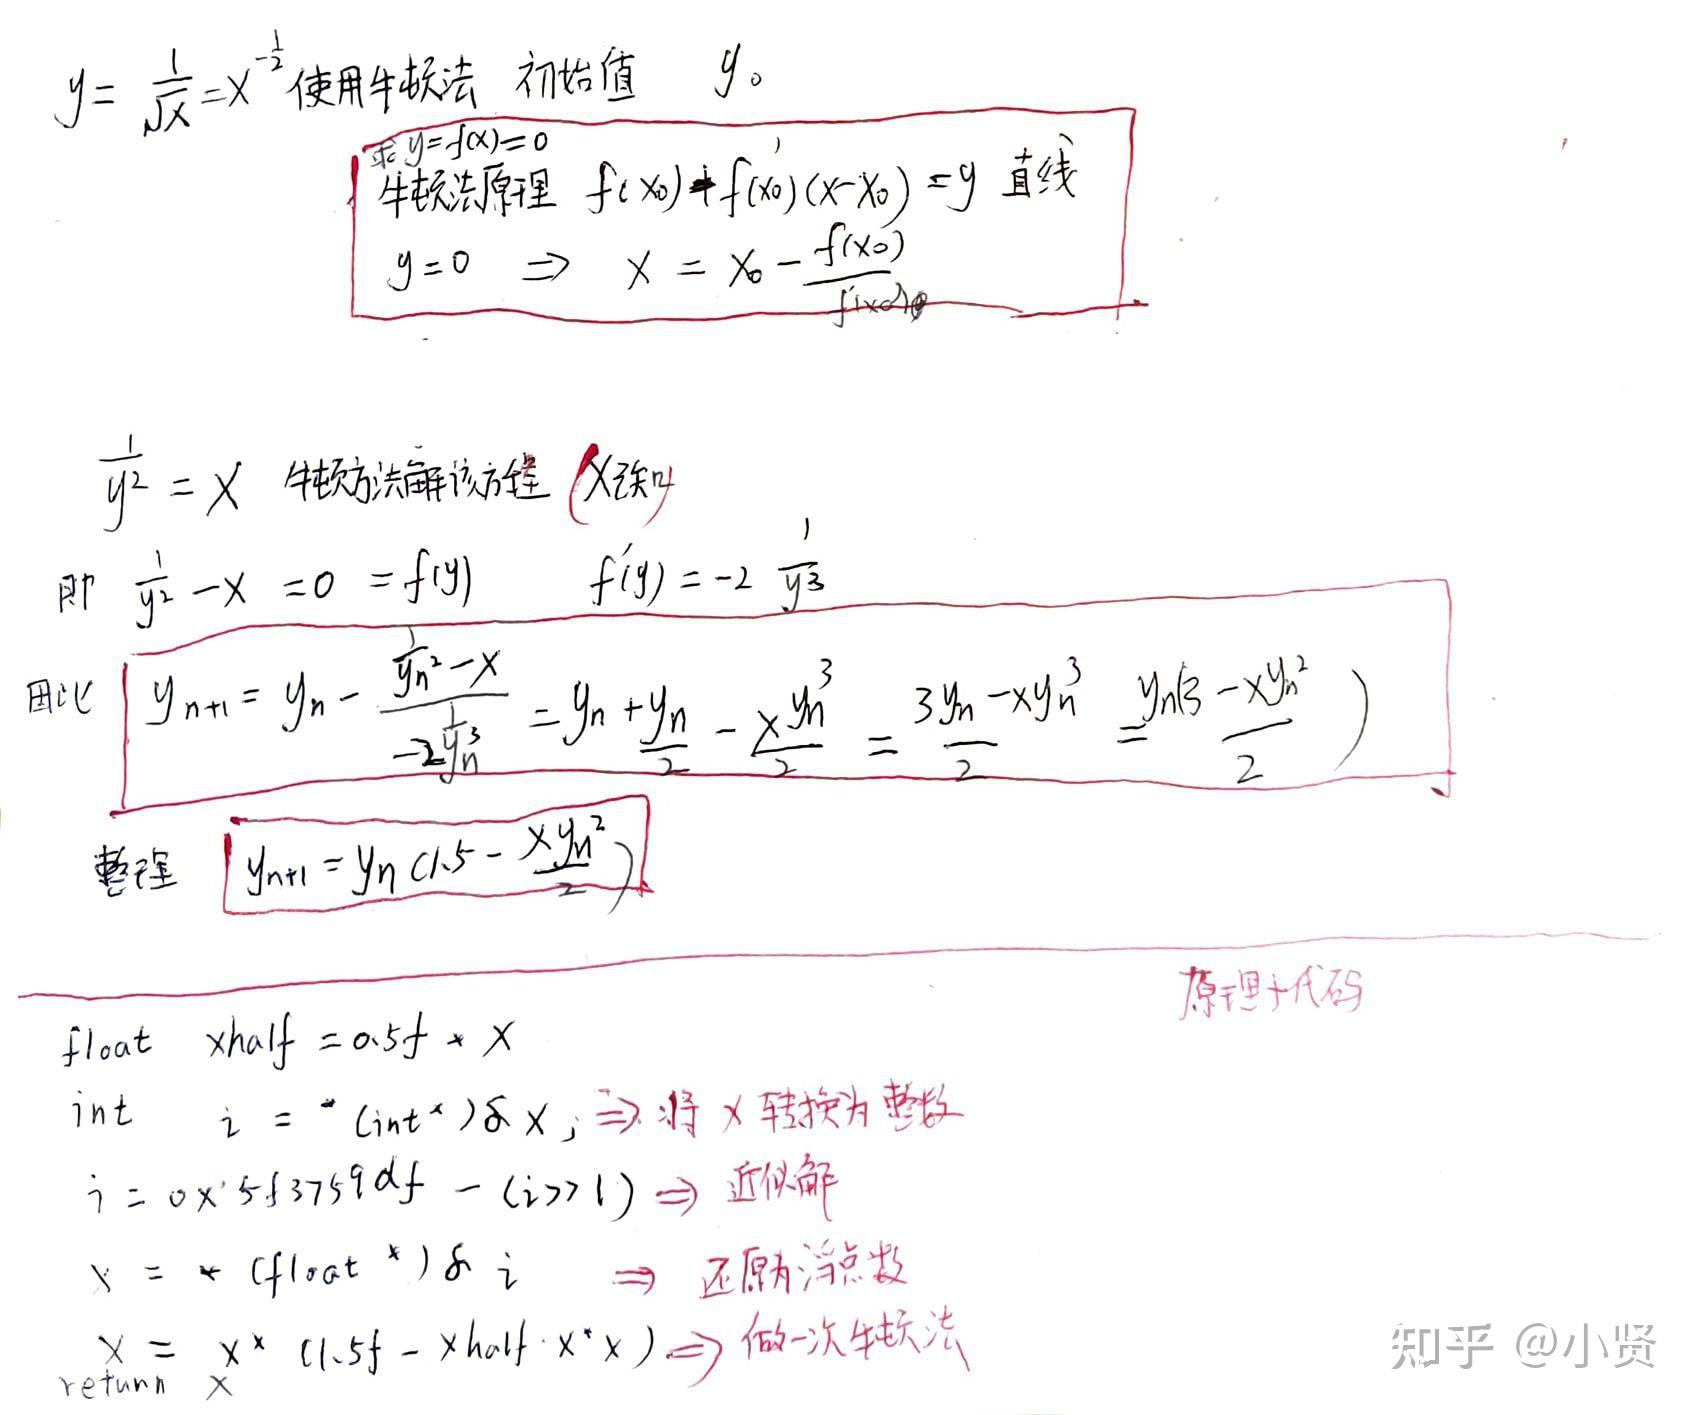 y = 1/√x = x^(-1/2) 使用牛顿法 初始值 y₀
求 y=f(x)=0
牛顿法原理 f(x₀)+f'(x₀)(x-x₀)=y 直线
y=0 ⇒ x = x₀ - f(x₀)/f'(x₀)
1/y² = x 牛顿方法解该方程 (x已知)
即 1/y² - x = 0 = f(y) f'(y) = -2 1/y³
因此 yₙ₊₁ = yₙ - (1/yₙ² - x)/(-2 1/yₙ³) = yₙ + yₙ/2 - xyₙ³/2 = (3yₙ - xyₙ³)/2 = yₙ(3 - xyₙ²)/2
整理 yₙ₊₁ = yₙ (1.5 - xyₙ²/2)
原理+代码
float xhalf = 0.5f * x
int i = *(int*)&x; ⇒ 将 x 转换为整数
i = 0x5f3759df - (i>>1) ⇒ 近似解
x = *(float *)& i ⇒ 还原为浮点数
x = x* (1.5f - xhalf·x*x) ⇒ 做一次牛顿法
return x
知乎 @小贤